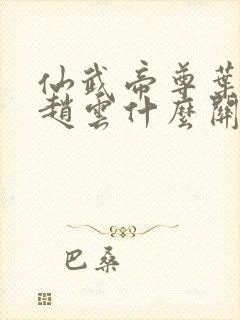 仙武帝尊葉
趙雲什麼關
巴桑